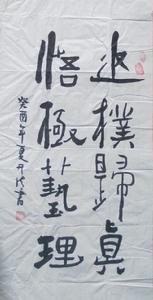 返樸歸真
悟極藝理
癸酉年夏月